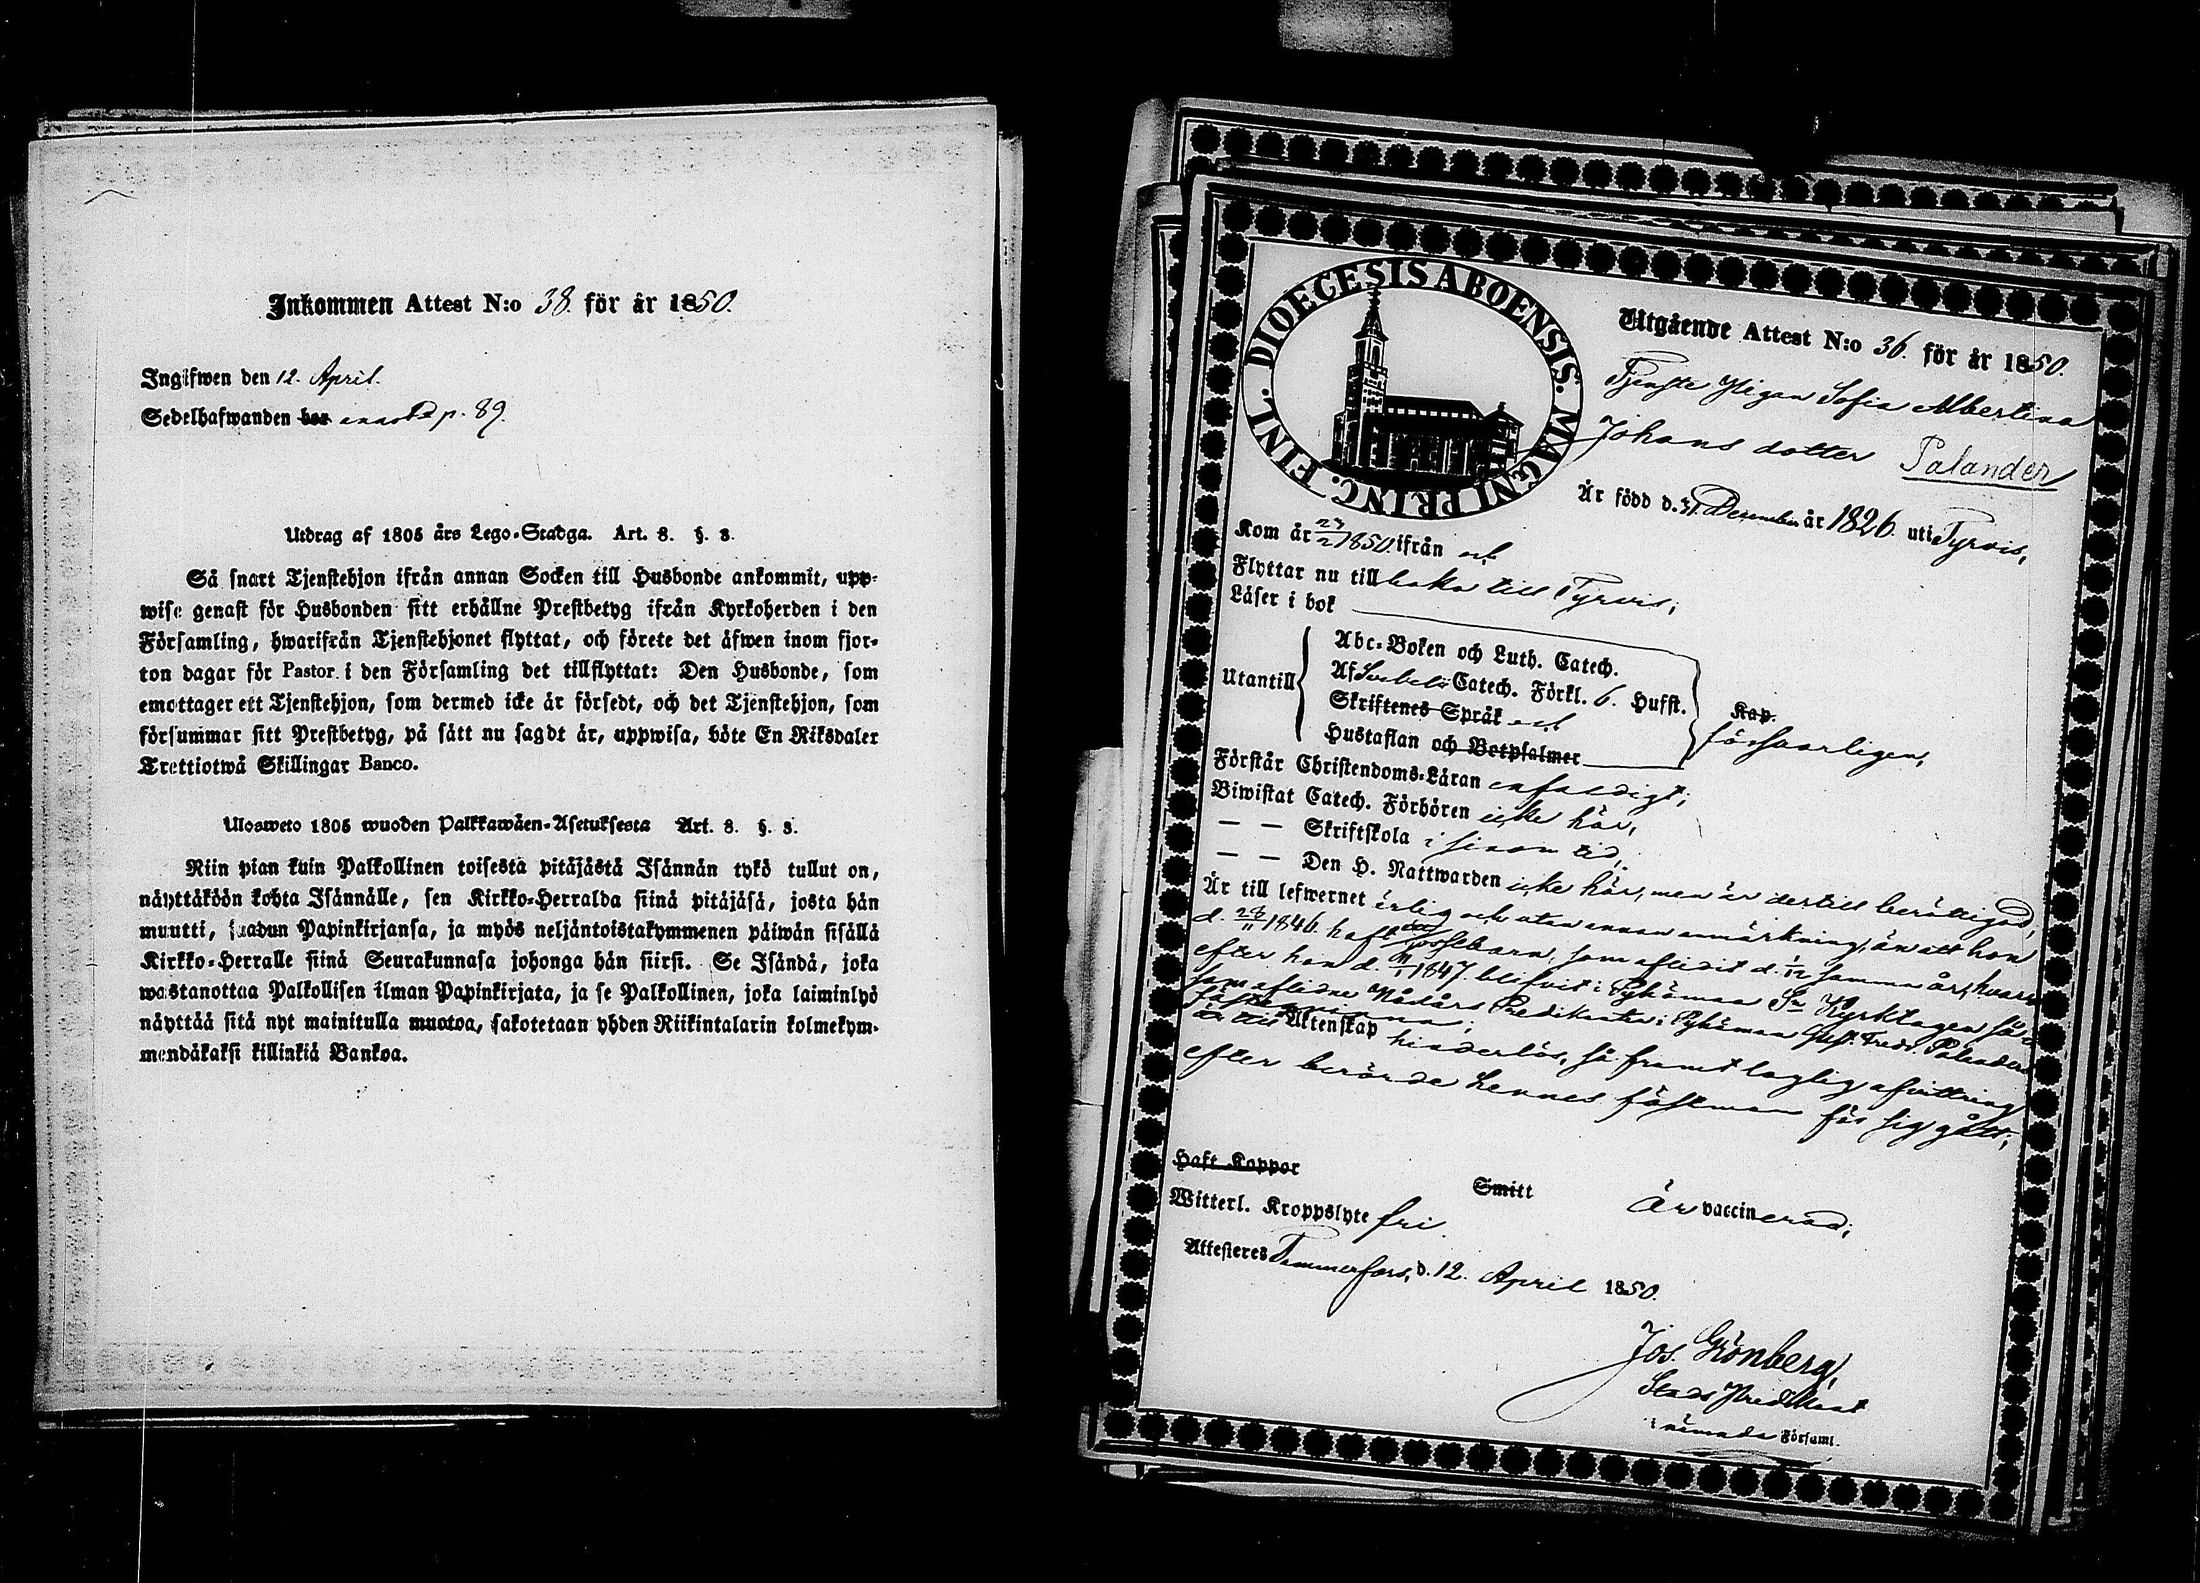 Inkommen Attest N:o 38. för år 1850.
Ingifwen den 12. April.
Sedelhafwanden bor p. 89.
Utdrag af 1805 års Lego-Stadga. Art. 8. §. 8.
Så snart Tjenstehjon ifrån annan Socken till Husbonde ankommit, upp-
wise genast för Husbonden sitt erhållne Prestbetyg ifrån Kyrkoherden i den
Församling, hwarifrån Tjenstehjonet flyttat, och förete det äfwen inom fjor-
ton dagar för Pastor i den Församling det tillflyttat: Den Husbonde, som
emottager ett Tjenstehjon, som dermed icke är försedt, och det Tjenstehjon, som
försummar sitt Prestbetyg, på sätt nu sagdt är, uppwisa, böte En Riksdaler
Trettiotwå Skillingar Banco.
Ulosweto 1805 wuoden Palkkawäen-Asetuksesta Art. 8. §. 8.
Niin pian kuin Palkollinen toisesta pitäjästä Isännän tykö tullut on,
näyttäköön kohta Isännälle, sen Kirkko-Herralda siinä pitäjäsä, josta hän
muutti, saadun Papinkirjansa, ja myös neljäntoistakymmenen päiwän sisällä
Kirkko-Herralle siinä Seurakunnasa johonga hän siirsi. Se Isändä, joka
wastanottaa Palkollisen ilman Papinkirjata, ja se Palkollinen, joka laiminlyö
näyttää sitä nyt mainitulla muotoa, sakotetaan yhden Riikintalarin kolmekym-
mendäkaksi killinkiä Bankoa.
DIOECESIS ABOENSIS. MAGNI PRINC. FINL.
Utgående Attest N:o 36. för år 1850.
Tjenste Pigan Sofia Albertina
Johans dotter Palander
Är född d. 31 December år 1826. uti Tyrvis,
Kom år 27/2 1850. ifrån och
Flyttar nu tillbaka till Tyrvis;
Läser i bok
Utantill
Abc-Boken och Luth. Catech.
Af Svebelii Catech. Förkl. 6. Hufst.
Skriftenes Språk och
Hustaflan och Botpsalmer
Kap.
försvarligen,
Förstår Christendoms-Läran enfaldigt;
Biwistat Catech. Förhören icke här,
— — Skriftskola i sinom tid,
— — Den H. Nattwarden icke här, men är dertill berättigad,
Är till lefwernet ärlig och utan annan anmärkning, än att hon
d. 28/11 1846. haft oä gossebarn, som aflidit d. 1/12 samma år, hvar-
efter hon d. 1847. blifvit i Pyhämaa Sn Kyrktagen så-
som aflidne Nådårs Predikanten i Pyhämaa Gust. Fredr. Palanders
fästeqvinna;
är till Äktenskap hinderlös, så framt laglig afvittring
efter berörde hennes fästeman för sig gått;
Haft Koppor Smitt Är vaccinerad;
Witterl. Kroppslyte fri.
Attesteres Tammerfors, d. 12. April 1850.
Jos. Grönberg,
Stads Predikant
i nämnde Församl.